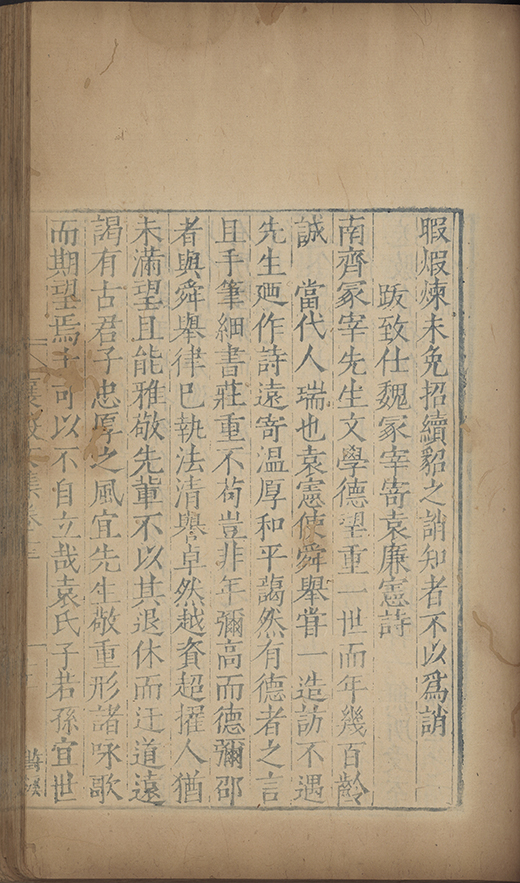 暇煆煉未免招續貂之誚知者不以爲誚
跋致仕魏冢宰寄袁廉憲詩
南齊冢宰先生文學德望重一世而年幾百齡
誠　當代人瑞也袁憲使舜舉甞一造訪不遇
先生廼作詩遠寄溫厚和平藹然有德者之言
且手筆細書莊重不苟豈非年彌高而德彌邵
者與舜舉律巳執法清譽卓然越資超擢人猶
未滿望且能雅敬先軰不以其退休而迂道遠
謁有古君子忠厚之風宜先生敬重形諸咏歌
而期望焉士可以不自立哉袁氏子若孫宜世
襄毅文集卷